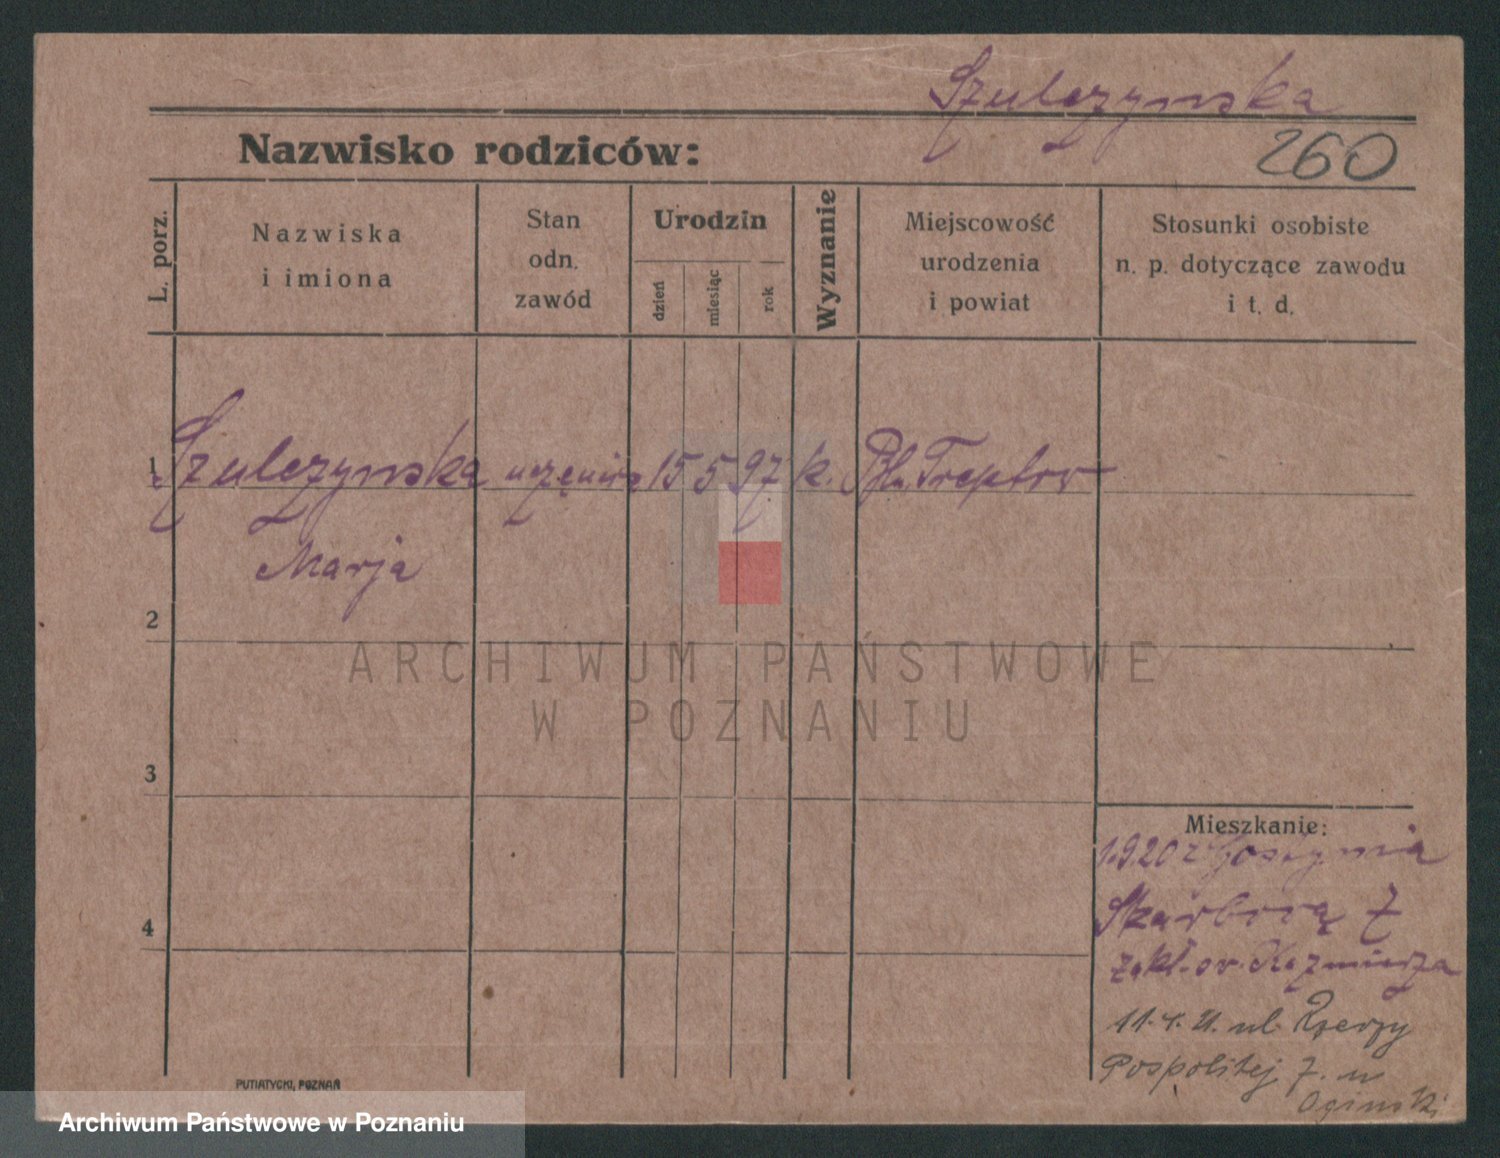 Szulczynska
Nazwisko rodziców:
260
L. porz.
Nazwiska
i imiona
Stan
odn.
zawód
Urodzin
dzień
miesiąc
rok
Wyznanie
Miejscowość
urodzenia
i powiat
Stosunki osobiste
n. p. dotyczące zawodu
i t. d.
1 Szulczynska uczenica 15 5 97 k. Treptow
Marja
2
ARCHIWUM PAŃSTWOWE
W POZNANIU
3
Mieszkanie:
1.9.20 z Gostynia
4
Skarbową 7
zakł. św. Kazmierza
11. 4. 21. ul. Rzeczy
Pospolitej 7. u
Oginski
PUTIATYCKI, POZNAŃ
Archiwum Państwowe w Poznaniu